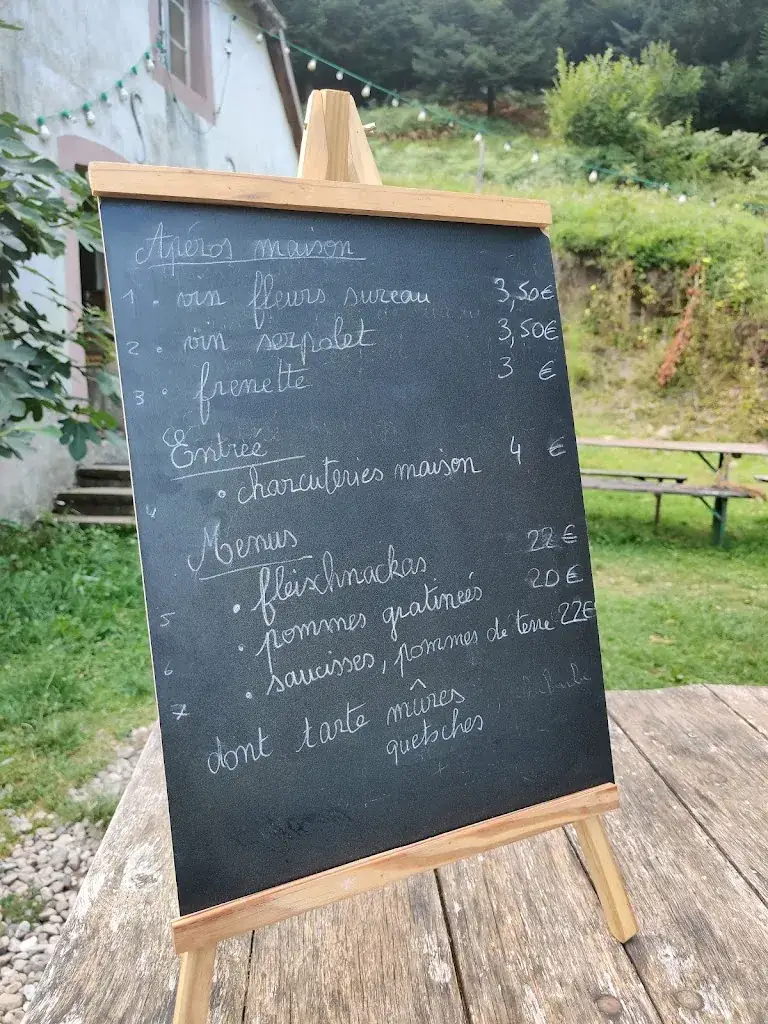 Apéros maison
1 . vin fleurs sureau 3,50€
2 . vin serpolet 3,50€
3 . frenette 3 €
Entrée
4 . charcuteries maison 4 €
Menus
5 . fleischnackas 22 €
6 . pommes gratineés 20 €
7 . saucisses, pommes de terre 22€
dont tarte mûres
quetsches